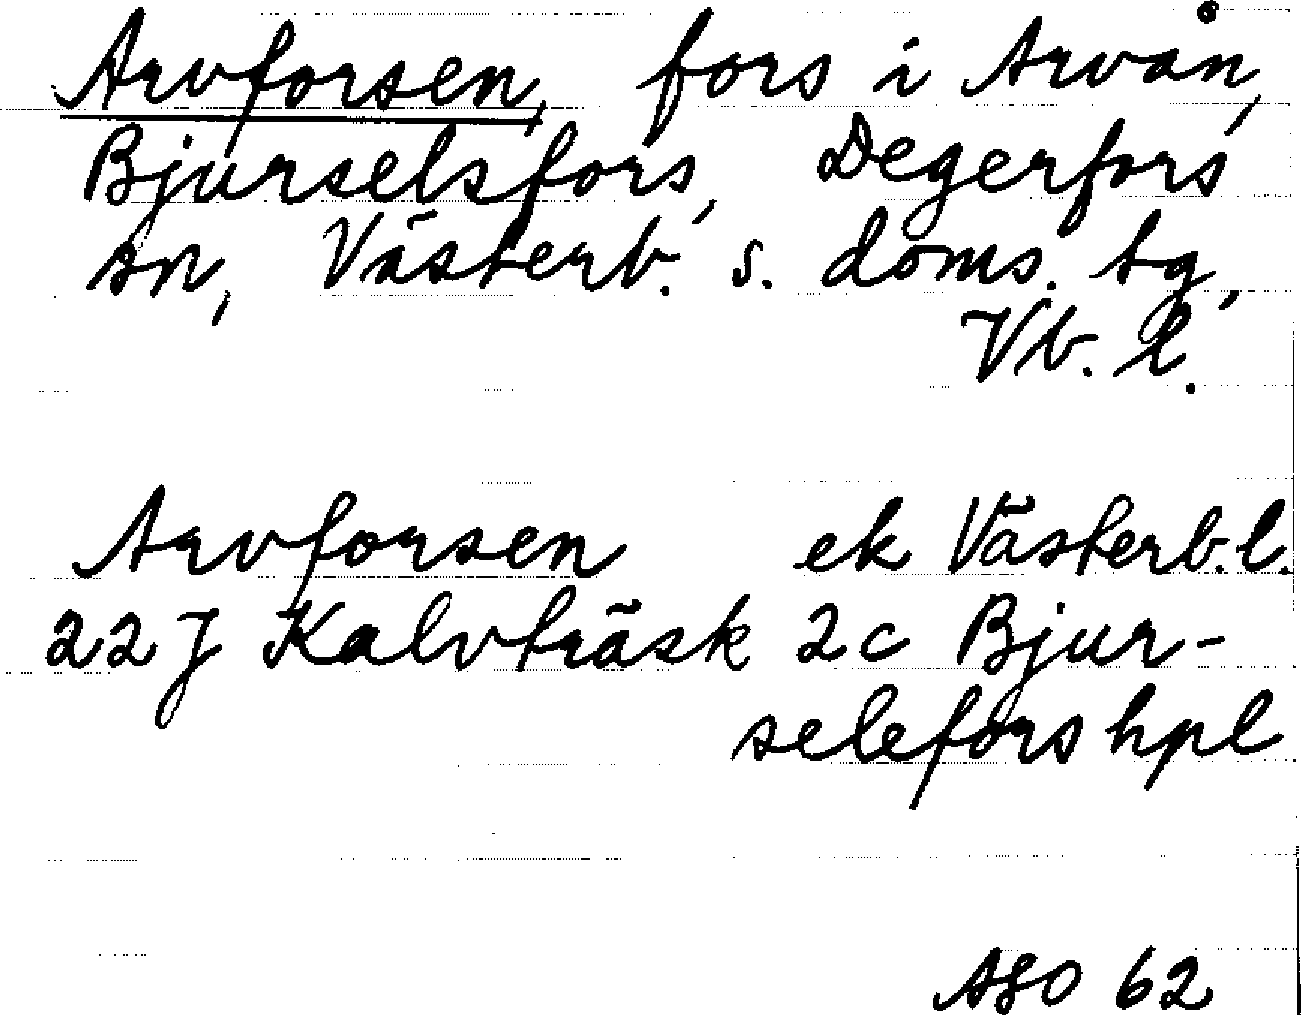 Arvforsen, fors i Arvån,
Bjurselsfors, Degerfors
sn, Västerb. s. doms. tg,
Vb. l.
Arvforsen ek Västerb. l.
22J Kalvträsk 2c Bjur-
selefors hpl
ASO 62